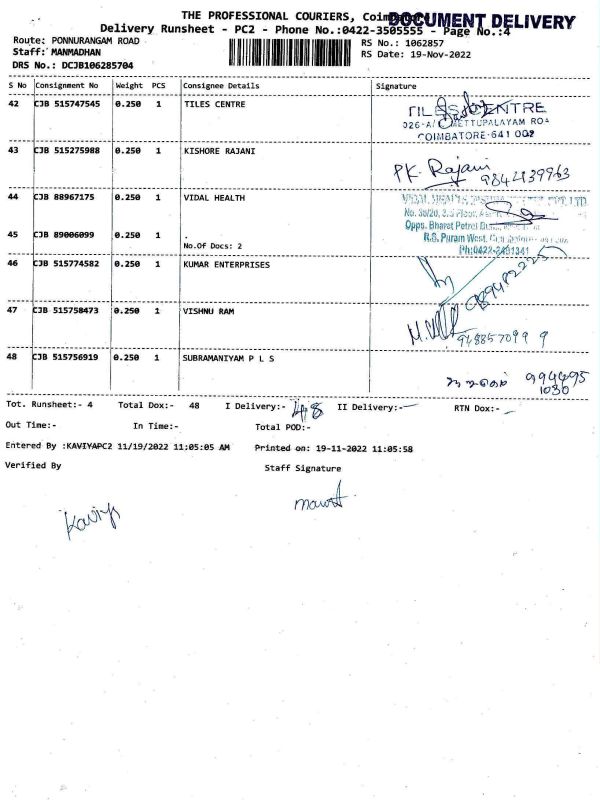 THE PROFESSIONAL COURIERS, DOCUMENT DELIVERY
Delivery Runsheet - PC2 - Phone No.:0422-3505555 - Page No.:4
Route: PONNURANGAM ROAD RS No.: 1062857
Staff: MANMADHAN RS Date: 19-Nov-2022
DRS No.: DCJB106285704
S No Consignment No Weight PCS Consignee Details Signature
42 CJB 515747545 0.250 1 TILES CENTRE
TILES CENTRE
COIMBATORE-641 002
43 CJB 515275988 0.250 1 KISHORE RAJANI
PK. Rajani
44 CJB 88967175 0.250 1 VIDAL HEALTH
Opps. Bharat Petrol
R.S. Puram West,
Ph:0422-2491341
45 CJB 89006099 0.250 1 .
No.Of Docs: 2
46 CJB 515774582 0.250 1 KUMAR ENTERPRISES
47 CJB 515758473 0.250 1 VISHNU RAM
48 CJB 515756919 0.250 1 SUBRAMANIYAM P L S
Tot. Runsheet:- 4 Total Dox:- 48 I Delivery:- 48 II Delivery:- RTN Dox:-
Out Time:- In Time:- Total POD:-
Entered By :KAVIYAPC2 11/19/2022 11:05:05 AM Printed on: 19-11-2022 11:05:58
Verified By Staff Signature
Kaviya